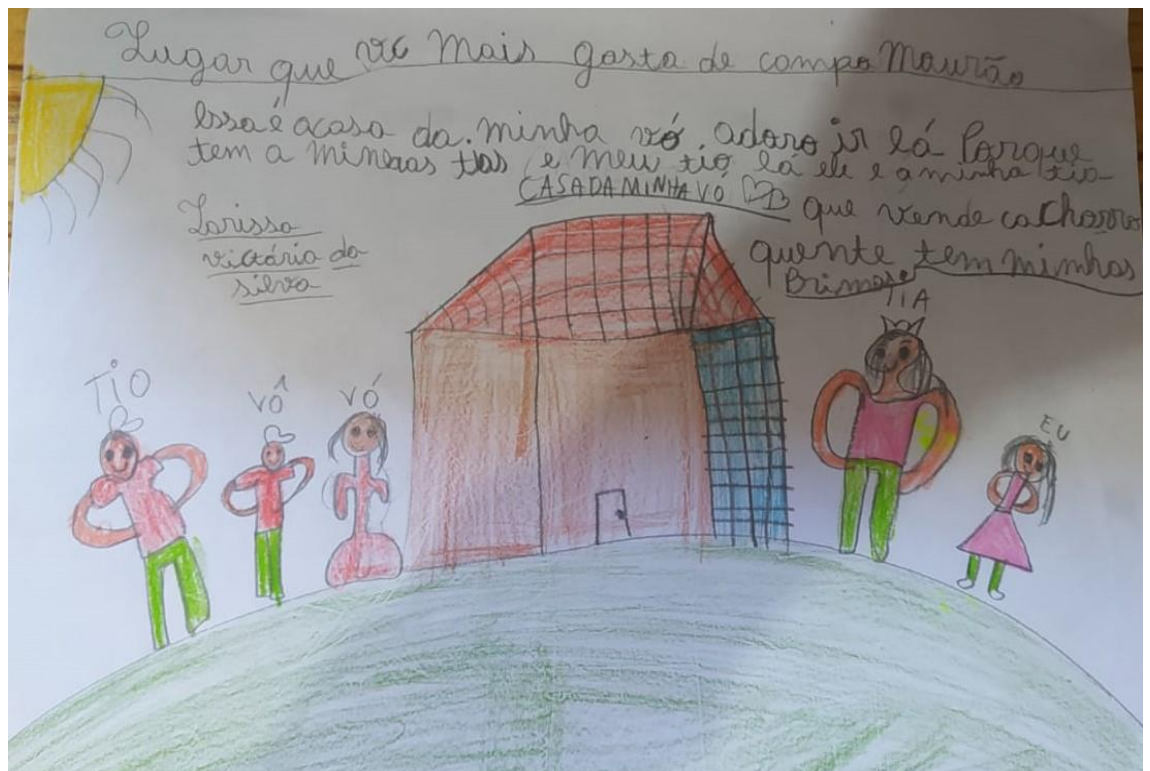 Lugar que vc Mais gosta de campo Mourão
Essa é a casa da minha vó, adoro ir lá Porque
tem a minhas tias e meu tio lá ele e a minha tia
CASA DA MINHA VÓ
que vende cachorro
quente tem minhas
Primas
Larissa
victória da
silva
TIO
VÔ
VÓ
TIA
EU